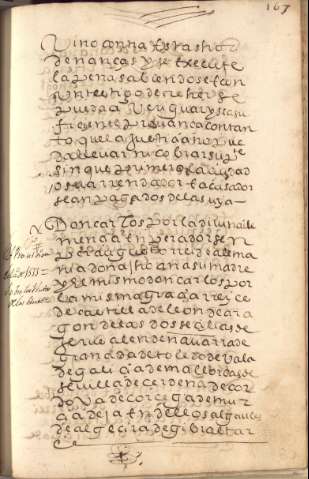 167
Vino contra estas hor
denanças y se execute
la pena sabiendose con
puede a veriguar y sea su
ficiente provança con tan
to que la justicia no pue
da llevar ni cobrar su pte
sin que primero la ciudad
o su arrendador e acusador
sean pagados de la suya
Don carlos por la divina cle
mencia enperador se n
per augusto rrei de alema
nia doña Jhoana su madre
y el mismo don carlos por
la misma graçia rreyes
de castilla de leon de ara
gon de las dos seçilias de
Jerusalen de navarra de
granada de toledo de vala
de galizia de mallorcas de
sevilla de cerdeña de cor
dova de corcega de murci
a de jaen de los algarves
de algecira de gibraltar